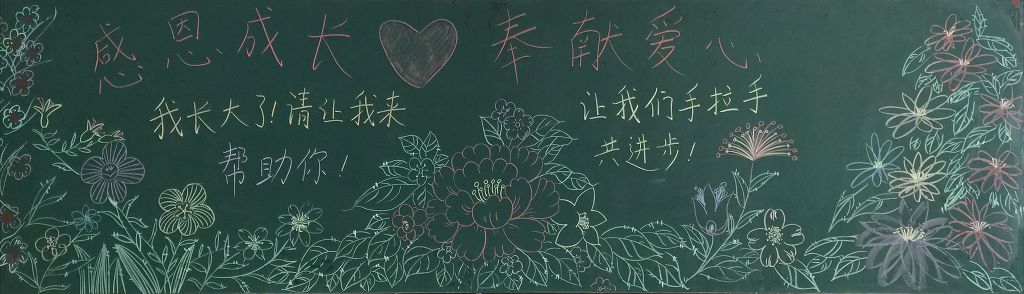 感恩成长 奉献爱心
我长大了!请让我来
帮助你!
让我们手拉手
共进步!